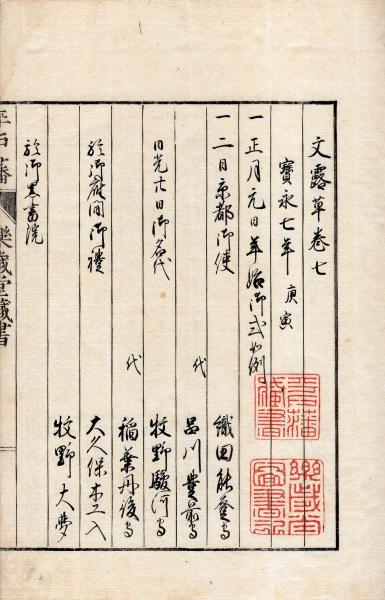 文露草卷七
寳永七年 庚寅
一正月元日年始御式如例
一二日京都御使
織田能登守
代
品川豊前守
日光廿日御名代
牧野駿河守
代
稲葉丹後守
於御座間御禮
大久保杢工入
於御黒書院
牧野大夢
平戸藩
藏書
樂歳堂
圖書記
平戸藩 樂歳堂藏書